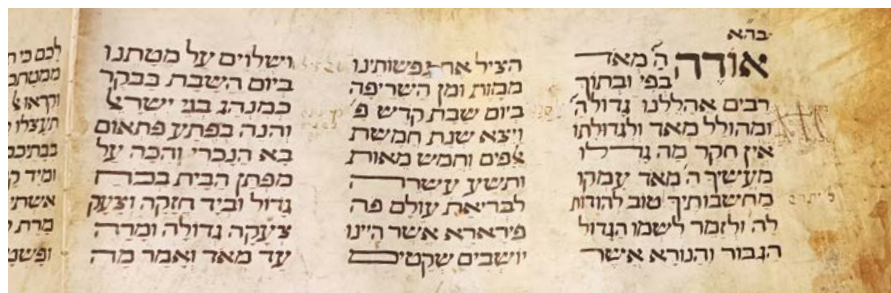 בה״א
אודה ה' מאד
בפי ובתוך
רבים אהללנו גדול ה'
ומהולל מאד ולגדולתו
אין חקר מה גדלו
מעשיך ה' מאד עמקו
מחשבותיך טוב להודות
לה' ולזמר לשמו הגדול
הגבור והנורא אשר
הציל את נפשותינו
ממות ומן השריפה
ביום שבת קדש פ'
ויצא שנת חמשת
אלפים וחמש מאות
ותשע עשרה
לבריאת עולם פה
פירארא אשר היינו
יושבים שקטים
ושלוים על מטתנו
ביום השבת בבקר
כמנהג בני ישראל
והנה בפתע פתאום
בא הנכרי והכה על
מפתן הבית בכח
גדול וביד חזקה וצעק
צעקה גדולה ומרה
עד מאד ואמר מה
לכם כי
וקראו
תעצלו
ומיד
אשתי
מרת